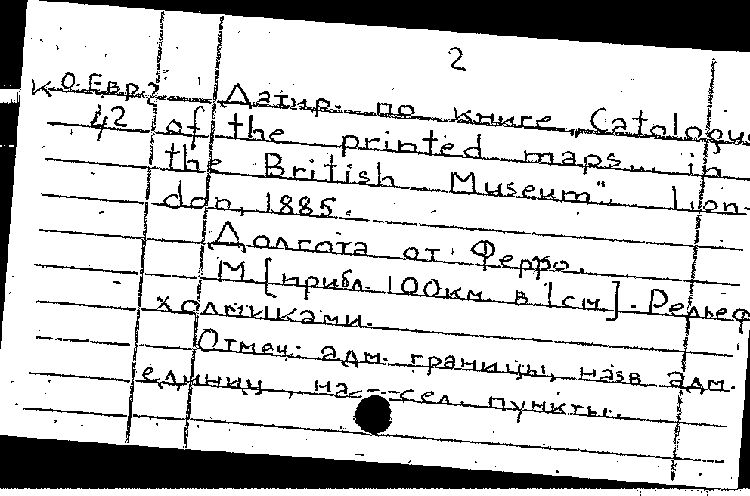 2
К О. Евр. 2
42
Датир. по книге „Catologue
of the printed maps... in
the British Museum". Lon-
don, 1885.
Долгота от Ферро.
М [прибл. 100км. в 1см]. Рельеф
холмиками.
Отмеч: адм. границы, назв. адм.
единиц, нас. сел. пункты.